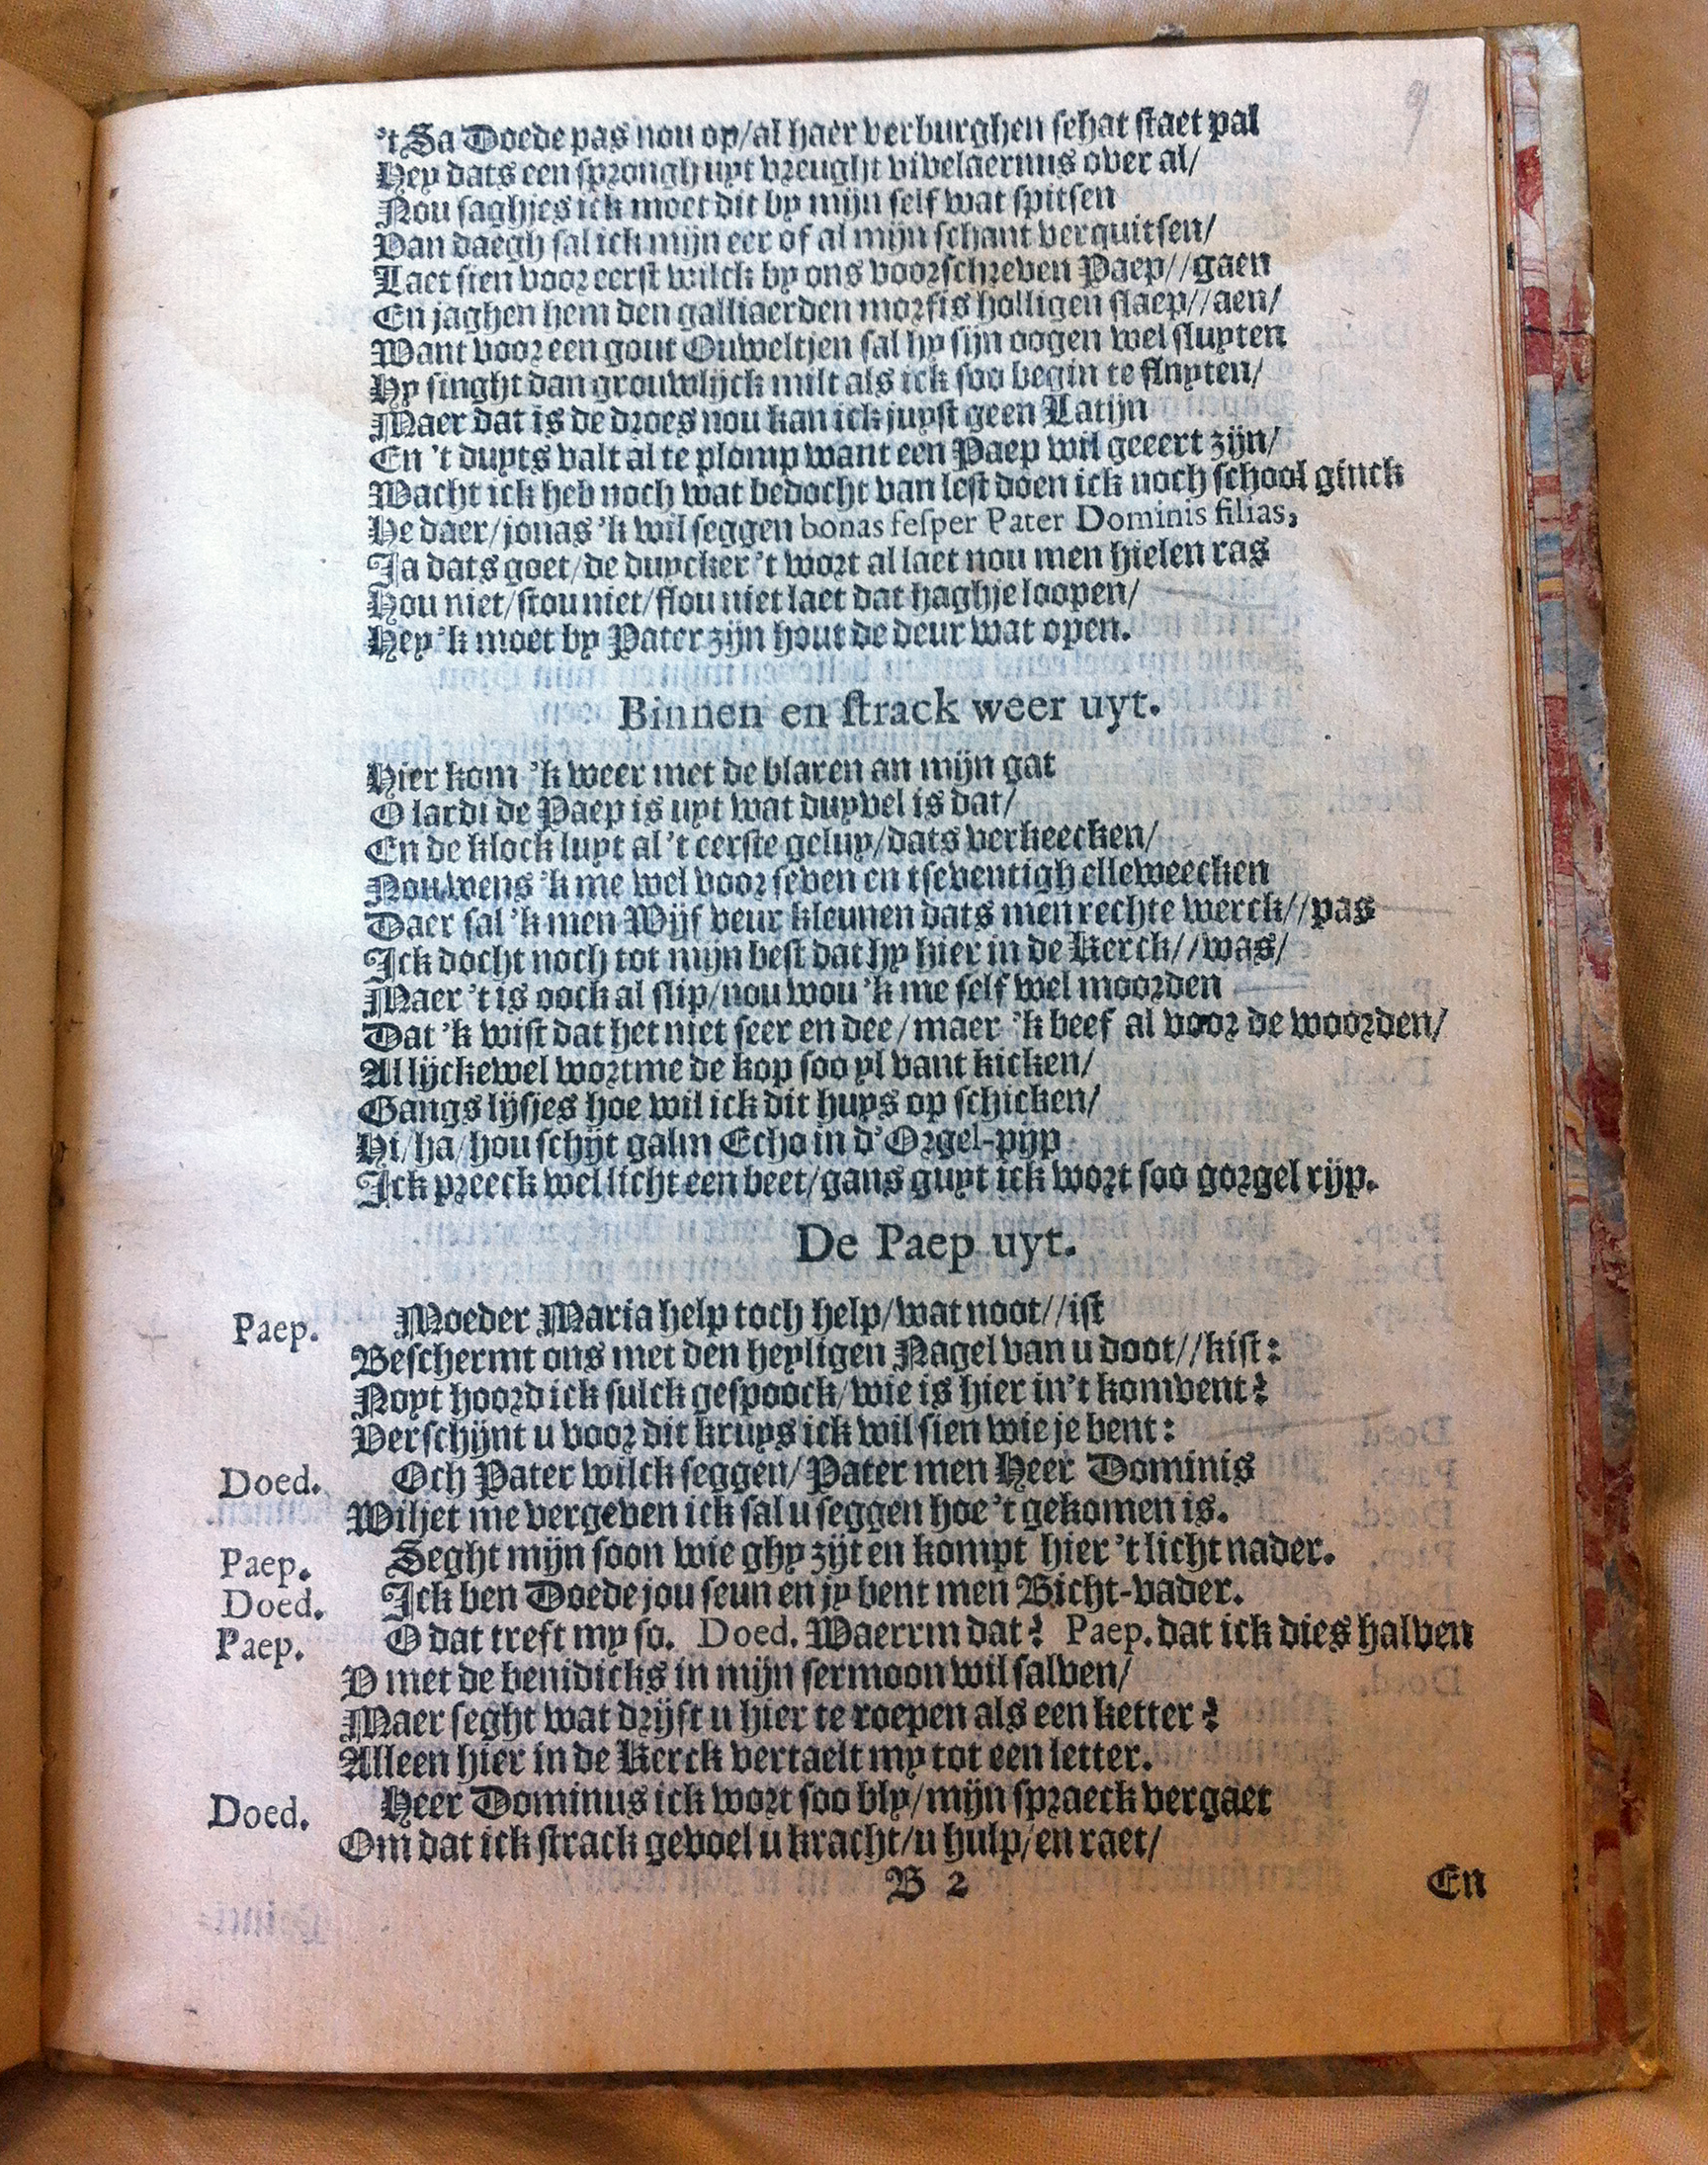 9
't Sa Doede pas nou op/al haer verburghen schat staet pal
Hey dats een sprongh uyt vreught vivelaermus over al/
Nou saghjes ick moet dit by mijn self wat spitsen
Van daegh sal ick mijn eer of al mijn schant verquitsen/
Laet sien voor eerst wilck by ons voorschreven Paep//gaen
En jaghen hem den galliaerden morfis holligen slaep//aen/
Want voor een gout Ouweltjen sal hy sijn oogen wel sluyten
Hy singht dan grouwlijck milt als ick soo begin te fluyten/
Maer dat is de droes nou kan ick juyst geen Latijn
En 't duyts valt al te plomp want een Paep wil geeert zijn/
Wacht ick heb noch wat bedocht van lest doen ick noch school ginck
He daer/jonas 'k wil seggen bonas fesper Pater Dominis filias,
Ja dats goet/de duycker 't wort al laet nou men hielen ras
Hou niet/stou niet/flou niet laet dat haghje loopen/
Hey 'k moet by Pater zijn hout de deur wat open.
Binnen en strack weer uyt.
Hier kom 'k weer met de blaren an mijn gat
O lardi de Paep is uyt wat duyvel is dat/
En de klock luyt al 't eerste geluy/dats verkeecken/
Nou wens 'k me wel voor seven en tseventigh elleweecken
Daer sal 'k men Wijf veur kleunen dats men rechte werck//pas
Ick docht noch tot mijn best dat hy hier in de Kerck//was/
Maer 't is oock al slip/nou wou 'k me self wel moorden
Dat 'k wist dat het niet seer en dee/maer 'k beef al voor de woorden/
Al lijckewel wort me de kop soo yl vant kicken/
Gangs lijsjes hoe wil ick dit huys op schicken/
Hi/ha/hou schijt galm Echo in d'Orgel-pijp
Ick preeck wel licht een beet/gans guyt ick wort soo gorgel rijp.
De Paep uyt.
Paep. Moeder Maria help toch help/wat noot//ist
Beschermt ons met den heyligen Nagel van u doot//kist:
Noyt hoord ick sulck gespoock/wie is hier in't konvent?
Verschijnt u voor dit kruys ick wil sien wie je bent:
Doed. Och Pater wilck seggen/Pater men Heer Dominis
Wiljet me vergeven ick sal u seggen hoe 't gekomen is.
Paep. Seght mijn soon wie ghy zijt en kompt hier 't licht nader.
Doed. Ick ben Doede jou seun en jy bent men Bicht-vader.
Paep. O dat treft my so. Doed. Waerrm dat? Paep. dat ick dies halven
V met de benidicks in mijn sermoon wil salven/
Maer seght wat drijft u hier te roepen als een ketter?
Alleen hier in de Kerck vertaelt my tot een letter.
Doed. Heer Dominus ick wort soo bly/mijn spraeck vergaet
Om dat ick strack gevoel u kracht/u hulp/en raet/
B 2 En